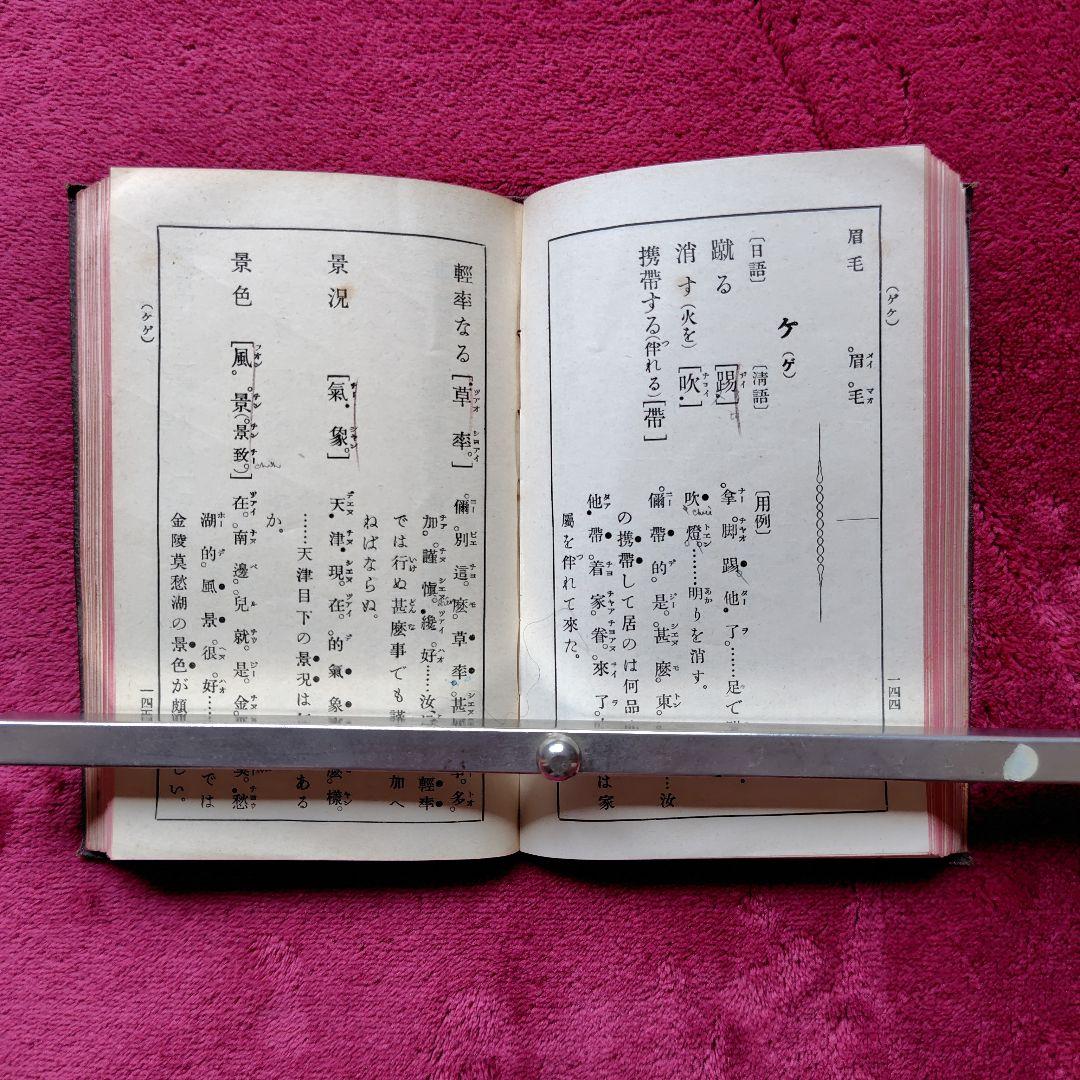 (ケゲ)
眉毛 眉。毛。 メイ マオ
ケ(ゲ)
〔日語〕 〔淸語〕 〔用例〕
蹴る [踢] 拿。脚踢他了。……足で
消す(火を) [吹] 吹燈。……明りを消す。
携帶する(伴れる) [帶] 儞帶的是。甚麽東。……汝
の携帶して居るのは何品
他帶着家眷。來了。は家
屬を伴れて來た。
一四四
輕率なる [草率。] 儞別這。麽草率。甚 多。
加。謹愼。纔好……汝 輕率
では行ぬ甚麽事でも 加へ
ねばならぬ。
景況 [氣象。] 天津現。在。的氣象 麽。樣。
……天津目下の景況は ある
か。
景色 [風。景(。景致。)] 在。南邊。兒就。是。金 莫。愁
湖的。風景。很。好……では
金陵莫愁湖の景色が頗 しい。
(ケゲ)
一四